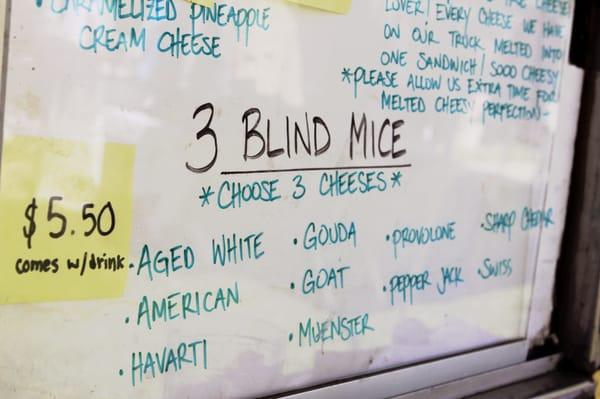 CARAMELIZED PINEAPPLE
CREAM CHEESE
LOVER! EVERY CHEESE WE HAVE
ON OUR TRUCK MELTED INTO
ONE SANDWICH! SOOO CHEESY
*PLEASE ALLOW US EXTRA TIME FOR
MELTED CHEESY PERFECTION~
3 BLIND MICE
*CHOOSE 3 CHEESES*
$5.50
comes w/drink
• AGED WHITE
• AMERICAN
• HAVARTI
• GOUDA
• GOAT
• MUENSTER
• PROVOLONE
• PEPPER JACK
• SHARP CHEDDAR
• SWISS